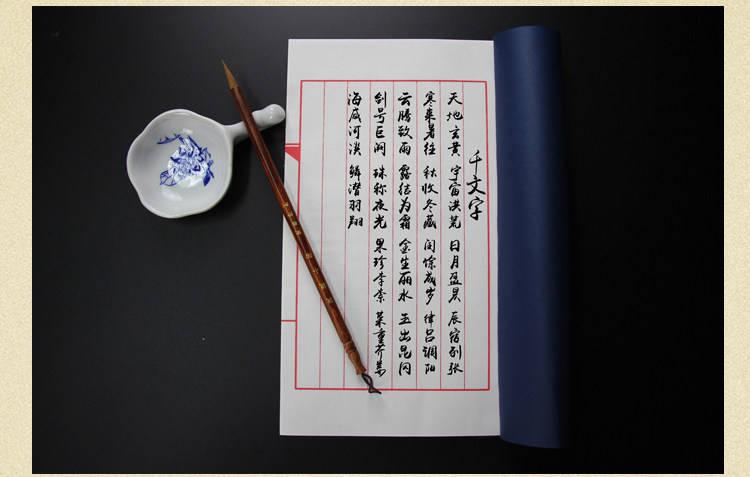 千文字
天地玄黄 宇宙洪荒 日月盈昃 辰宿列张
寒来暑往 秋收冬藏 闰馀成岁 律吕调阳
云腾致雨 露结为霜 金生丽水 玉出昆冈
剑号巨阙 珠称夜光 果珍李柰 菜重芥姜
海咸河淡 鳞潜羽翔